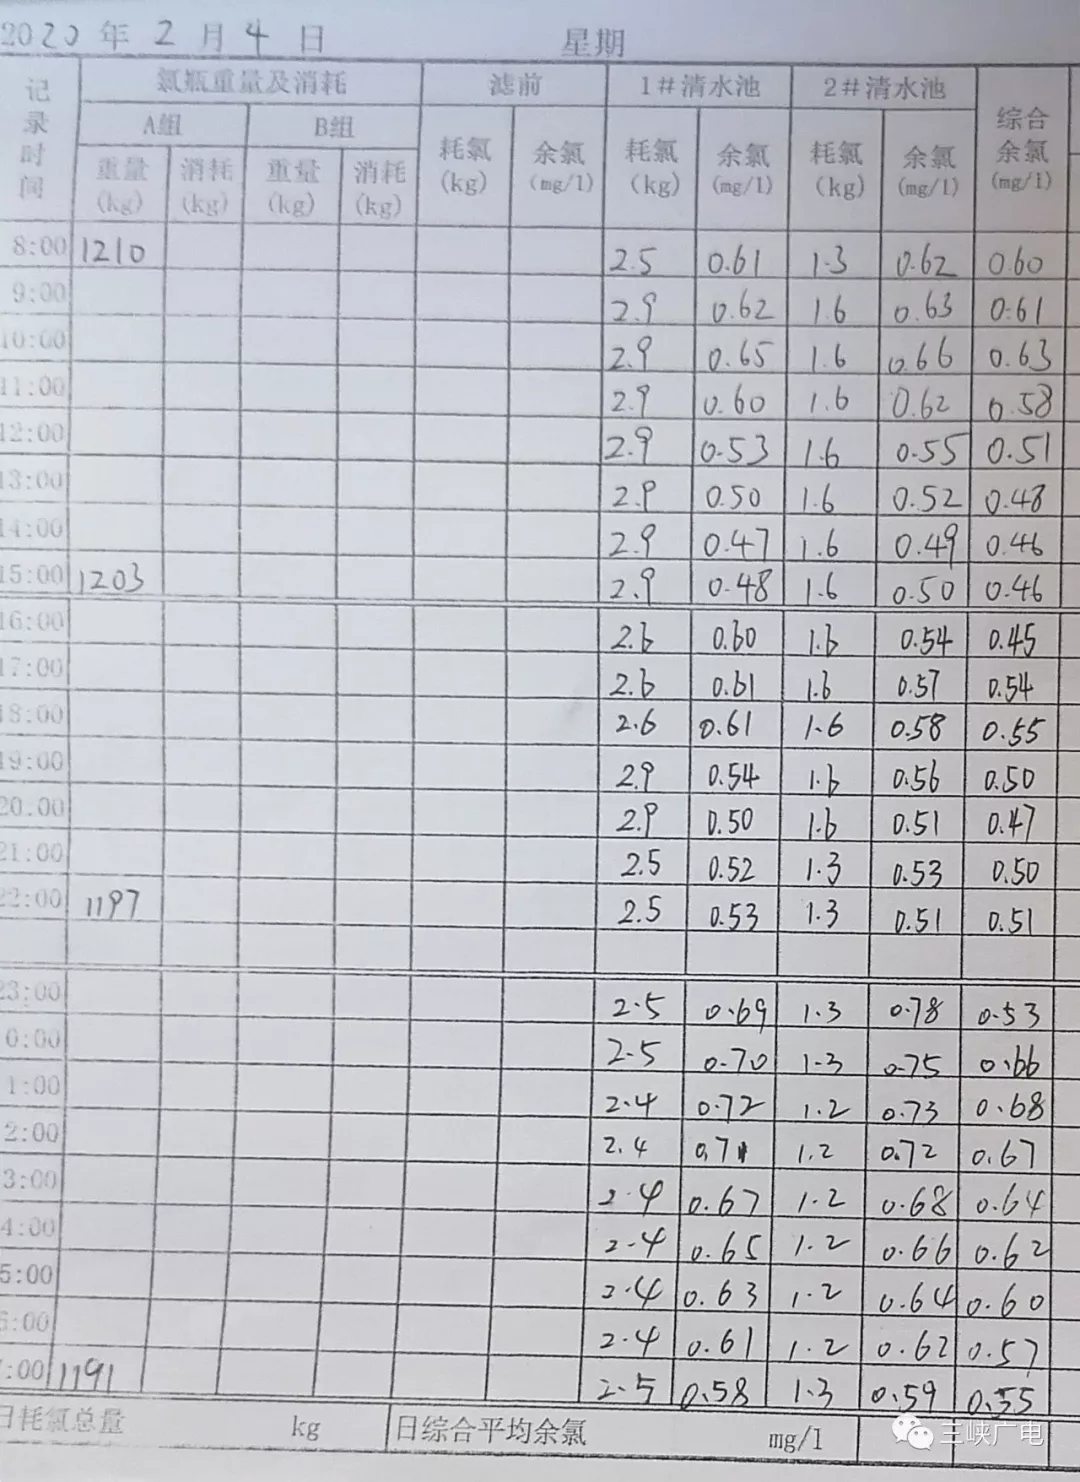 2020 年 2 月 4 日 星期
记录时间 氯瓶重量及消耗 滤前 1#清水池 2#清水池 综合余氯(mg/l)
A组 B组 耗氯(kg) 余氯(mg/l) 耗氯(kg) 余氯(mg/l) 耗氯(kg) 余氯(mg/l)
重量(kg) 消耗(kg) 重量(kg) 消耗(kg)
8:00 1210 2.5 0.61 1.3 0.62 0.60
9:00 2.9 0.62 1.6 0.63 0.61
10:00 2.9 0.65 1.6 0.66 0.63
11:00 2.9 0.60 1.6 0.62 0.58
12:00 2.9 0.53 1.6 0.55 0.51
13:00 2.9 0.50 1.6 0.52 0.48
14:00 2.9 0.47 1.6 0.49 0.46
15:00 1203 2.9 0.48 1.6 0.50 0.46
16:00 2.6 0.60 1.6 0.54 0.45
17:00 2.6 0.61 1.6 0.57 0.54
18:00 2.6 0.61 1.6 0.58 0.55
19:00 2.9 0.54 1.6 0.56 0.50
20:00 2.9 0.50 1.6 0.51 0.47
21:00 2.5 0.52 1.3 0.53 0.50
22:00 1197 2.5 0.53 1.3 0.51 0.51
23:00 2.5 0.69 1.3 0.78 0.53
0:00 2.5 0.70 1.3 0.75 0.66
1:00 2.4 0.72 1.2 0.73 0.68
2:00 2.4 0.71 1.2 0.72 0.67
3:00 2.4 0.67 1.2 0.68 0.64
4:00 2.4 0.65 1.2 0.66 0.62
5:00 2.4 0.63 1.2 0.64 0.60
6:00 2.4 0.61 1.2 0.62 0.57
:00 1191 2.5 0.58 1.3 0.59 0.55
日耗氯总量 kg 日综合平均余氯 mg/l
三峡广电